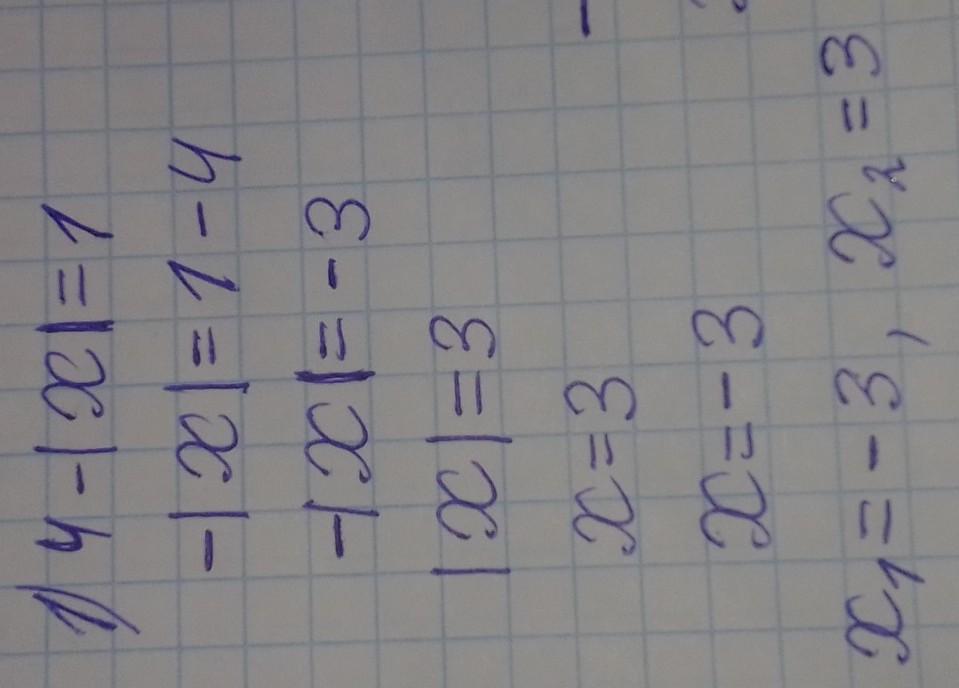 1) 4-|x|=1
-|x|=1-4
-|x|=-3
|x|=3
x=3
x=-3
x₁=-3, x₂=3